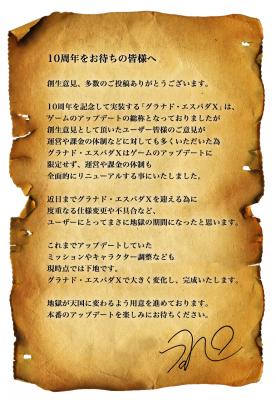 10周年をお待ちの皆様へ
創生意見、多数のご投稿ありがとうございます。
10周年を記念して実装する「グラナド・エスパダX」は、
ゲームのアップデートの総称となっておりましたが
創生意見として頂いたユーザー皆様のご意見が
運営や課金の体制などに対しても多くいただいた為
グラナド・エスパダXはゲームのアップデートに
限定せず、運営や課金の体制も
全面的にリニューアルする事にいたしました。
近日までグラナド・エスパダXを迎える為に
度重なる仕様変更や不具合など、
ユーザーにとってまさに地獄の期間になったと思います。
これまでアップデートしていた
ミッションやキャラクター調整なども
現時点では下地です。
グラナド・エスパダXで大きく変化し、完成いたします。
地獄が天国に変わるよう用意を進めております。
本番のアップデートを楽しみにお待ちください。